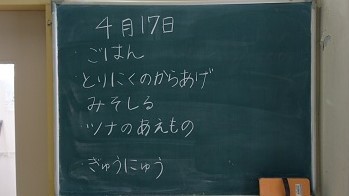 4月17日
ごはん
とりにくのからあげ
みそしる
ツナのあえもの
ぎゅうにゅう